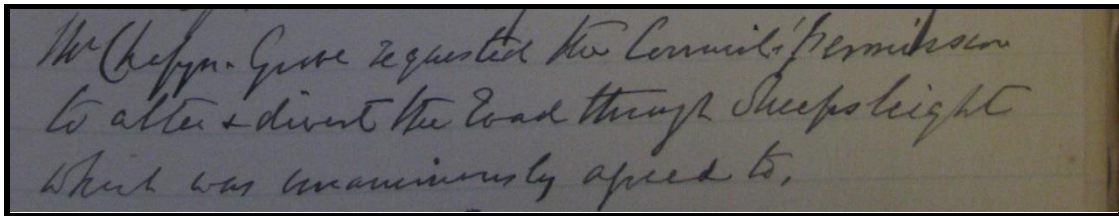 Mr Chafyn-Grove requested the Council's permission
to alter & divert the Road through Sheepsleight
which was unanimously agreed to.